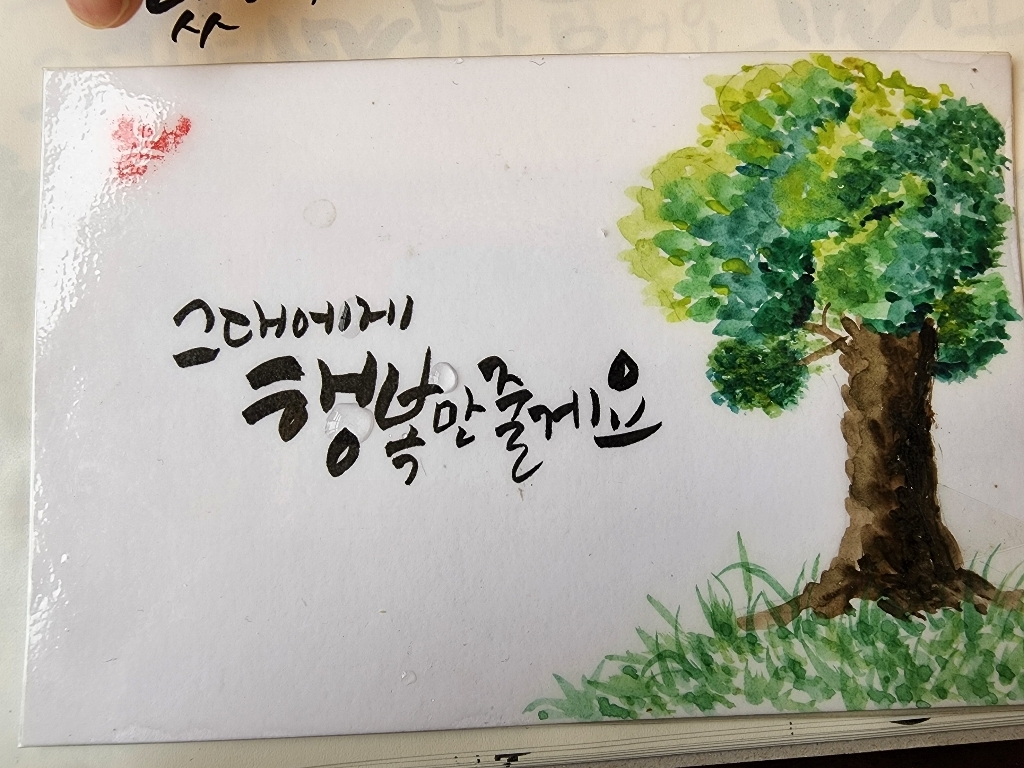 그대에게
행복만 줄게요